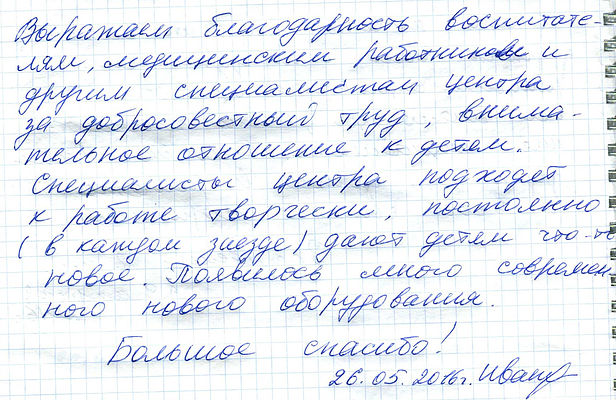 Выражаем благодарность воспитате-
лям, медицинским работникам и
другим специалистам центра
за добросовестный труд, внима-
тельное отношение к детям.
Специалисты центра подходят
к работе творчески, постоянно
(в каждом заезде) дают детям что-то
новое. Появилось много современ-
ного нового оборудования.
Большое спасибо!
26.05.2016г.